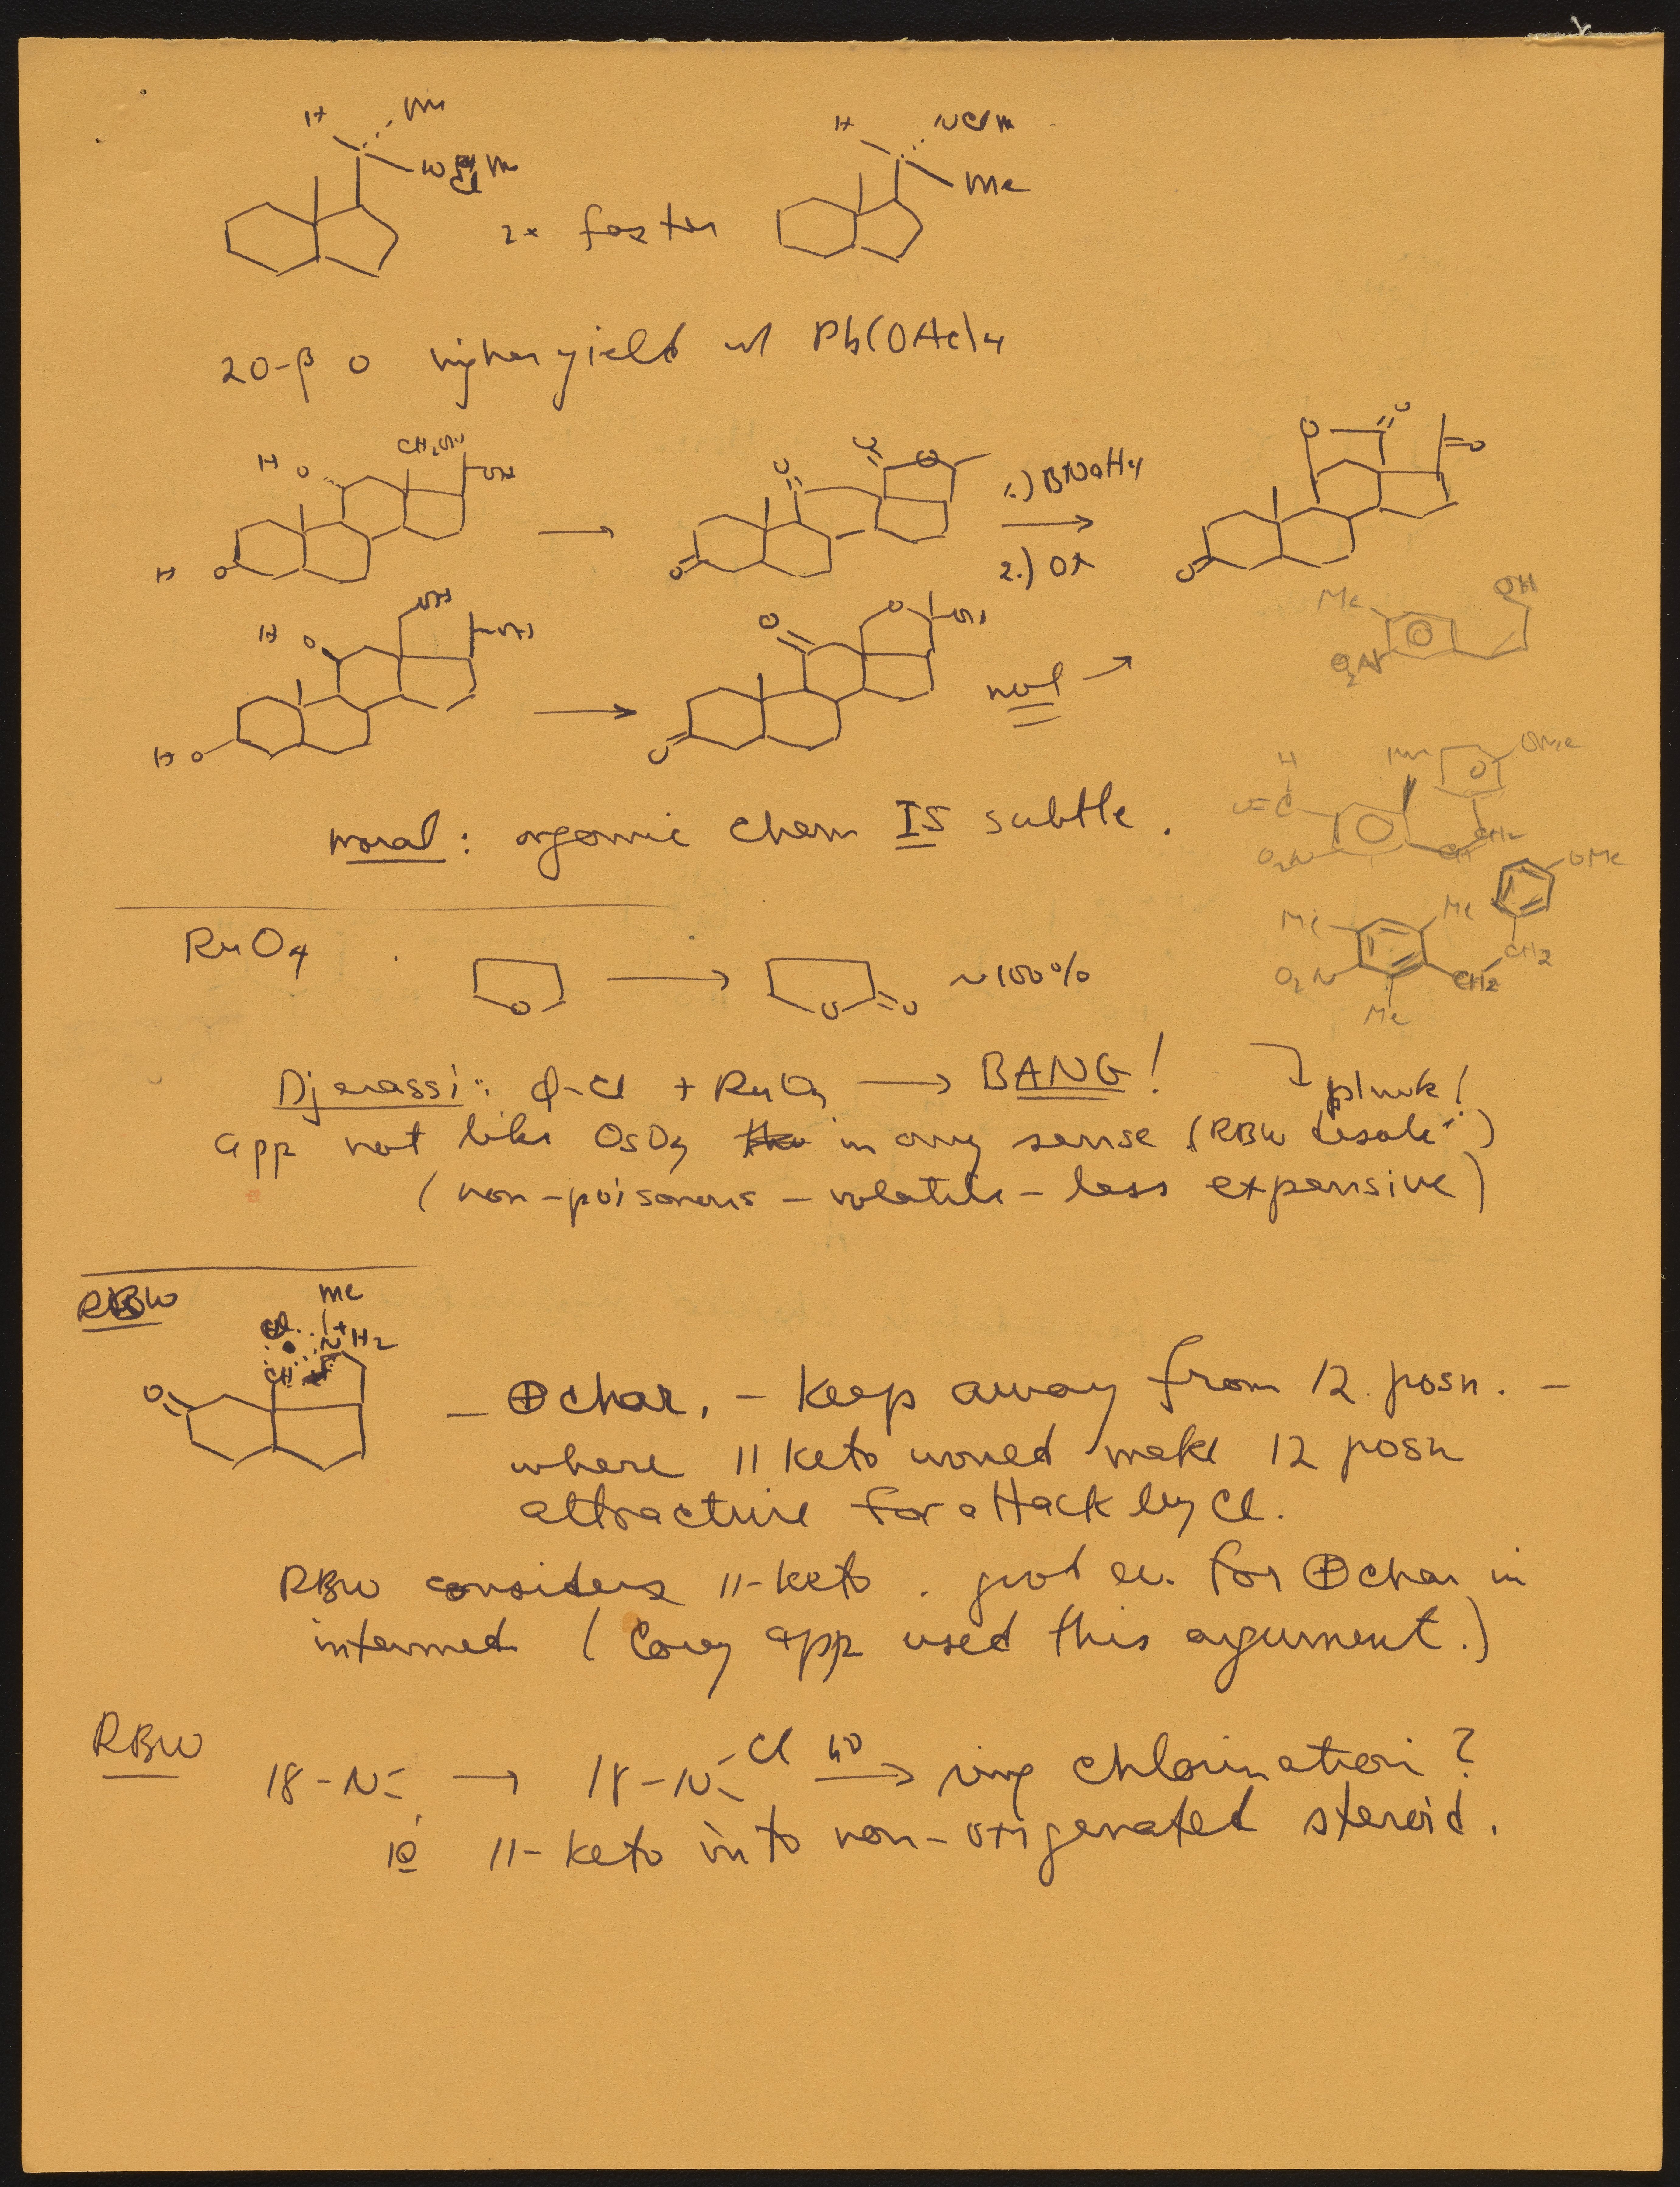 H Me
H NClMe
Me
2x faster
20-β O higher yield w/ Pb(OAc)4
CH2OH
H O OH
O O O
1.) NaBH4
2.) Ox
O O
O
H O O O
Me OH
O2N
OH
H O OH
O O OH
not →
H O O
H OMe
O=C
O2N CH CH2
moral: organic chem IS subtle.
OMe
Me Me
O2N CH2 CH2
Me
RuO4
O O O ~100%
Djerassi: φ-Cl + RuO4 → BANG! plunk!
app not like OsO4 in any sense (RBW desole)
(non-poisonous - volatile - less expensive)
RBW
Me
Cl N+H2
CH H
O
- ⊕ char. - keep away from 12 posn. -
where 11 keto would make 12 posn
attractive for attack by Cl.
RBW considers 11-keto . good ev. for ⊕ char in
intermed (Corey app used this argument.)
RBW
18-N → 18-N Cl hν → ring chlorination?
ie 11-keto into non-oxigenated steroid.